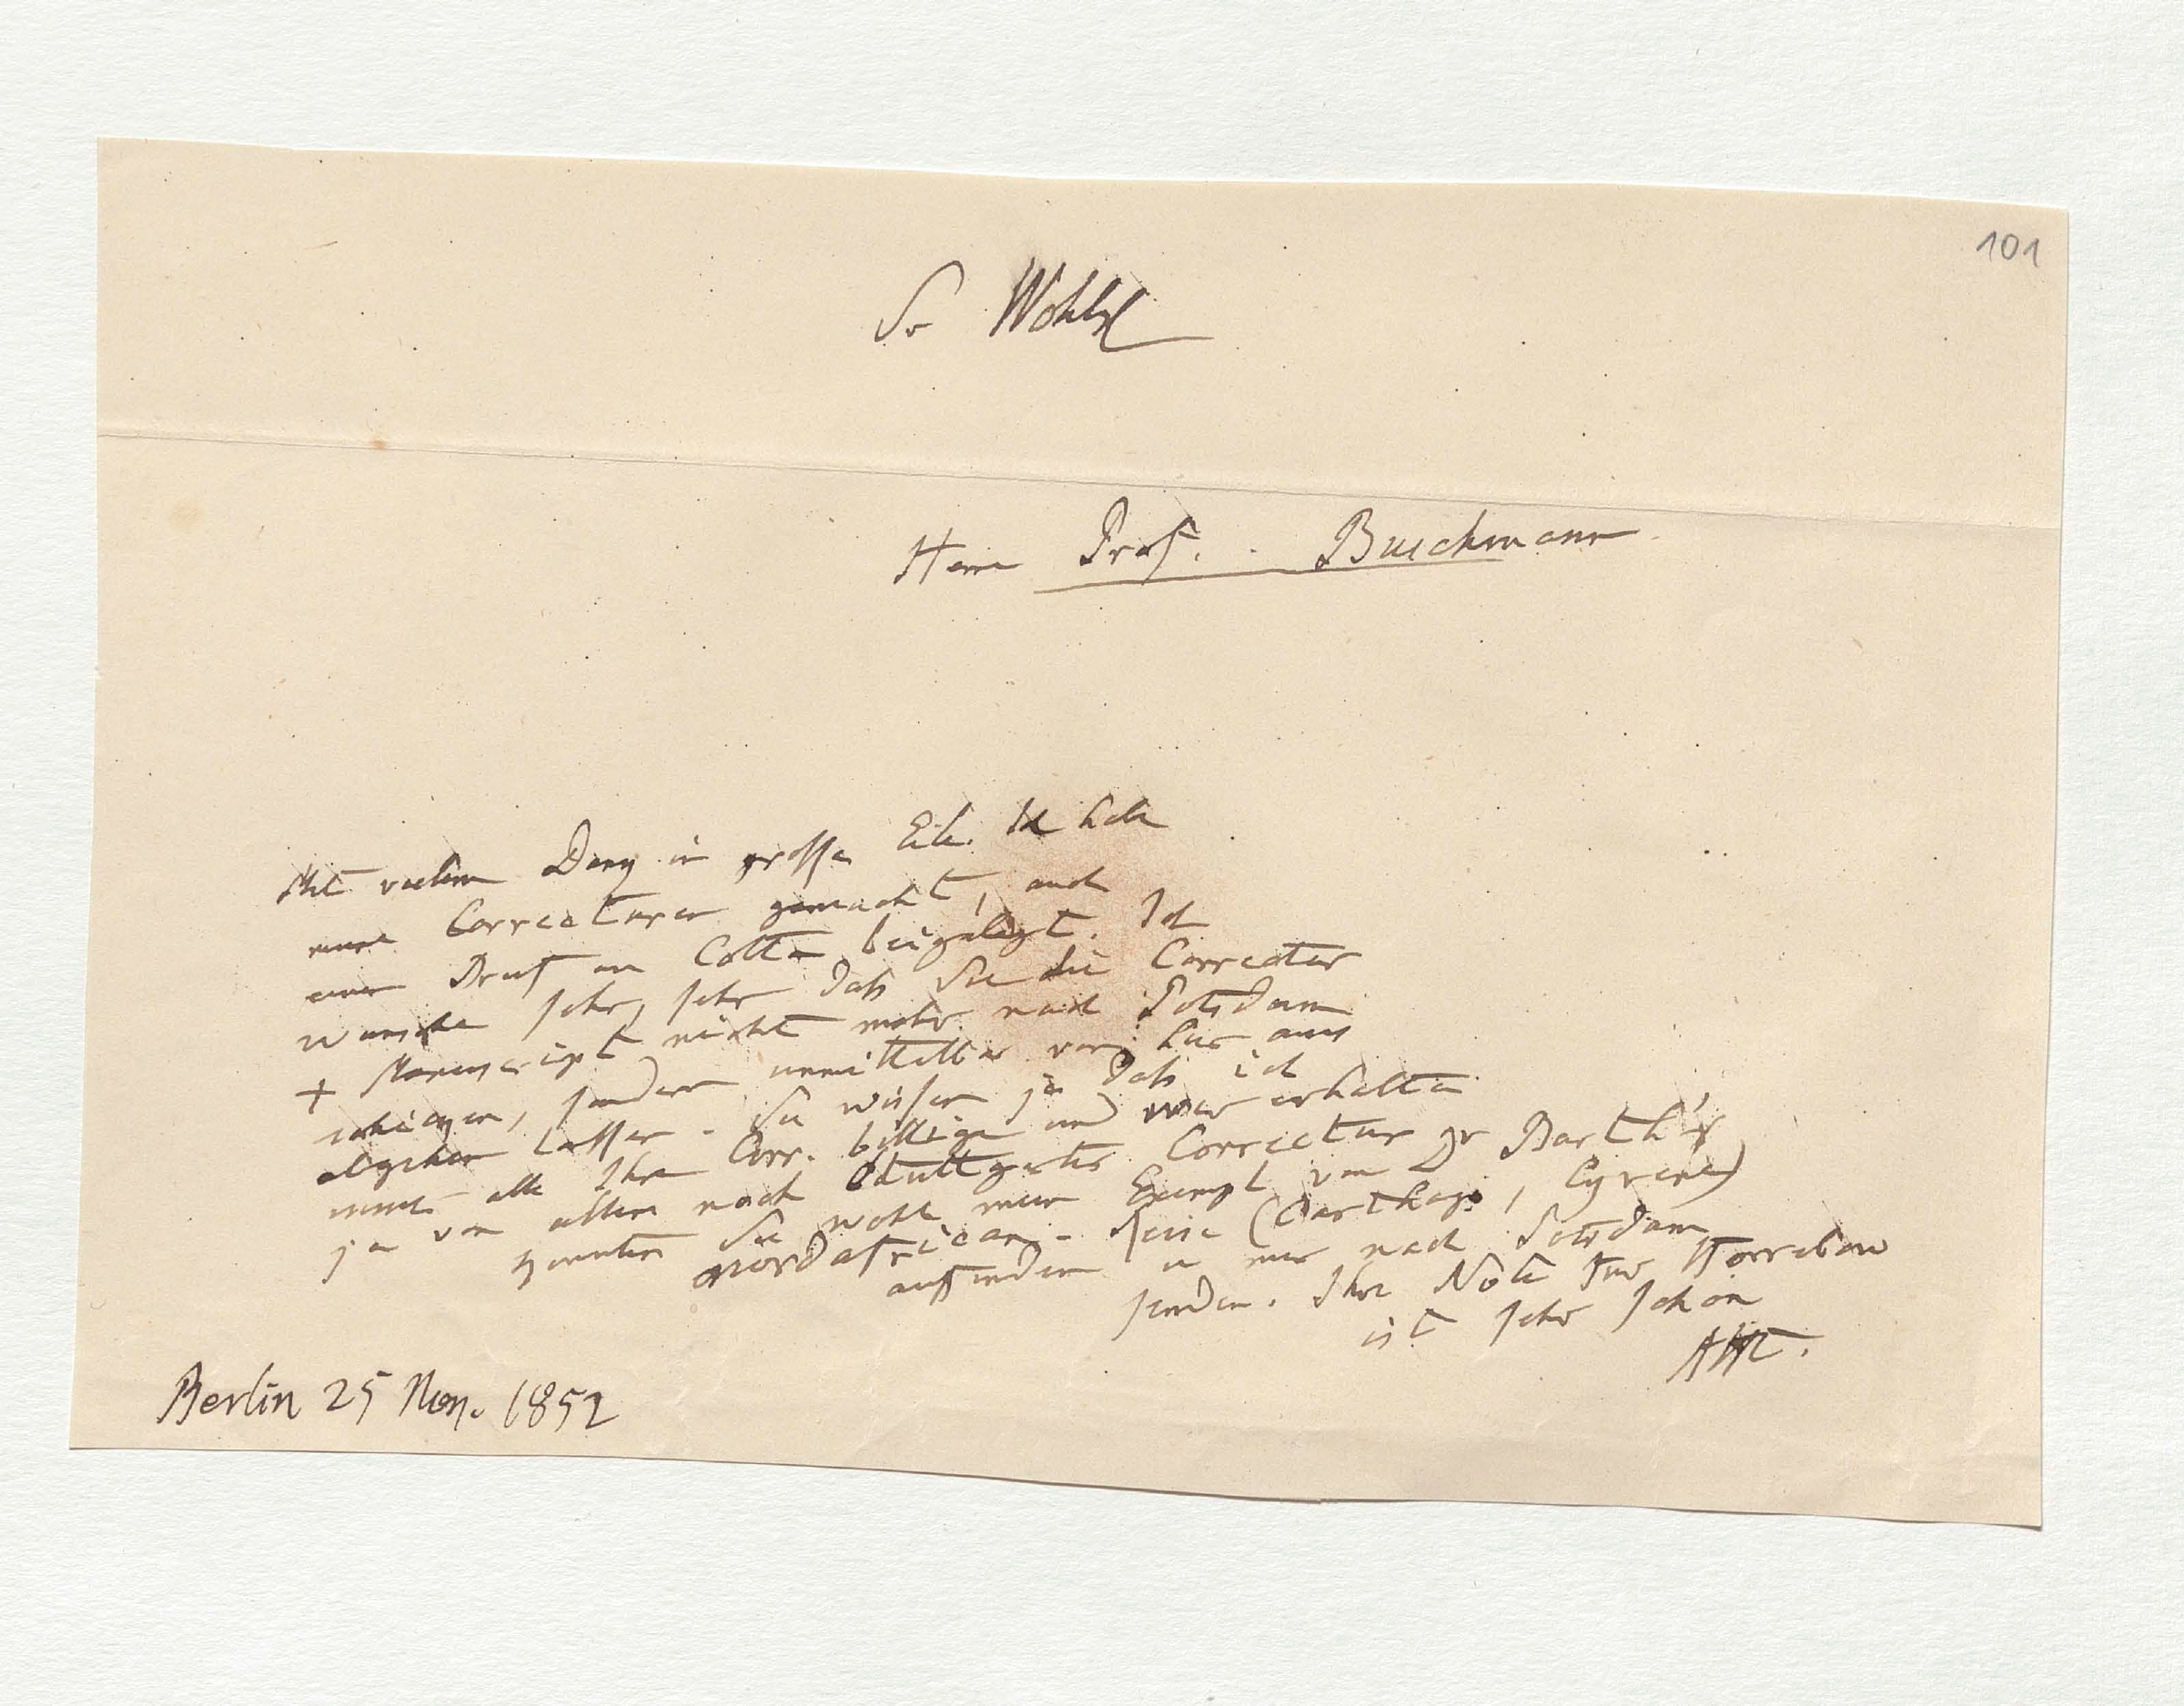 101
Sr Wohlg
Herrn Prof. Buschmann
Mit vielem Dank in grosser Eile. Ich habe
meine Correcturen gemacht, auch
einen Brief an Cotta beigelegt. Ich
wünsche sehr, sehr daß Sie die Correctur
+ Manuscript nicht mehr nach Potsdam
schicken, sondern unmittelbar von hier aus
abgehen lassen. Sie wissen ja daß ich
immer alle Ihre Corr. billige und wir erhalten
ja von allem noch Stuttgarter Correctur
Könnten Sie wohl mein Exempl von Dr Barth's
nordafrican. Reise (Carthago, Cyrene)
auffinden u mir nach Potsdam
senden. Ihre Note für
ist sehr schön
AHt.
Berlin 25 Nov. 1852